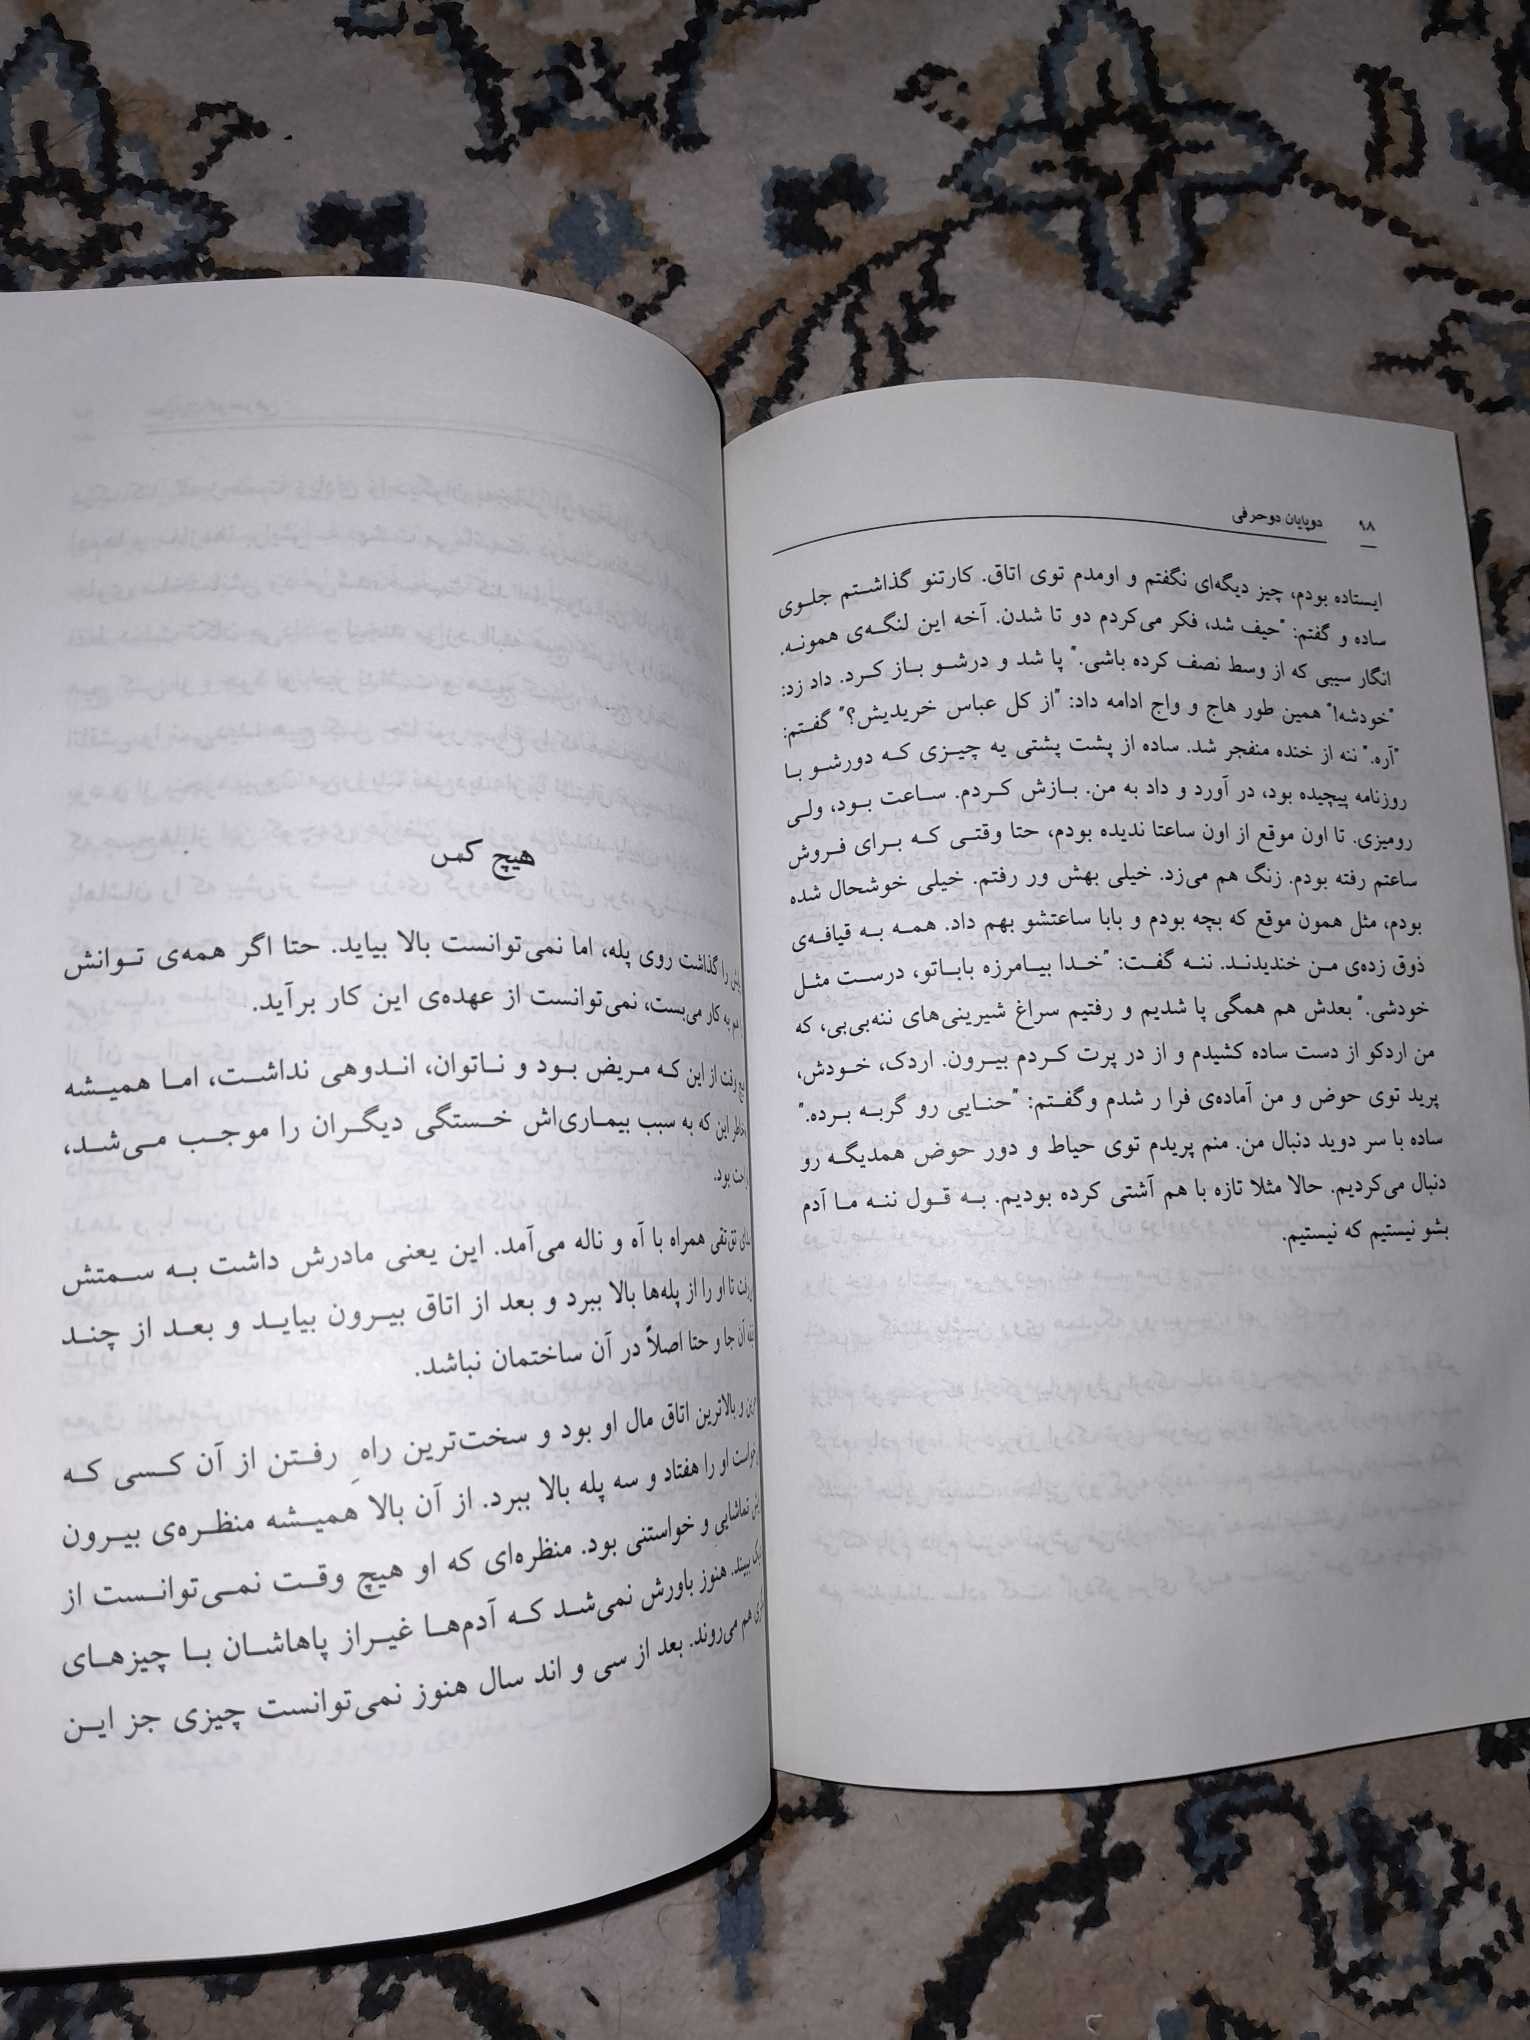 ۹۸ دوپایان دوحرفی
ایستاده بودم، چیز دیگه‌ای نگفتم و اومدم توی اتاق. کارتنو گذاشتم جلوی
ساده و گفتم: "حیف شد، فکر می‌کردم دو تا شدن. آخه این لنگه‌ی همونه.
انگار سیبی که از وسط نصف کرده باشی." پا شد و درشو باز کرد. داد زد:
"خودشه!" همین طور هاج و واج ادامه داد: "از کل عباس خریدیش؟" گفتم:
"آره." ننه از خنده منفجر شد. ساده از پشت پشتی یه چیزی که دورشو با
روزنامه پیچیده بود، در آورد و داد به من. بازش کردم. ساعت بود، ولی
رومیزی. تا اون موقع از اون ساعتا ندیده بودم، حتا وقتی که برای فروش
ساعتم رفته بودم. زنگ هم می‌زد. خیلی بهش ور رفتم. خیلی خوشحال شده
بودم، مثل همون موقع که بچه بودم و بابا ساعتشو بهم داد. همه به قیافه‌ی
ذوق زده‌ی من خندیدند. ننه گفت: "خدا بیامرزه باباتو، درست مثل
خودشی." بعدش هم همگی پا شدیم و رفتیم سراغ شیرینی‌های ننه‌بی‌بی، که
من اردکو از دست ساده کشیدم و از در پرت کردم بیرون. اردک، خودش،
پرید توی حوض و من آماده‌ی فرا ر شدم وگفتم: "حنایی رو گربه برده."
ساده با سر دوید دنبال من. منم پریدم توی حیاط و دور حوض همدیگه رو
دنبال می‌کردیم. حالا مثلا تازه با هم آشتی کرده بودیم. به قول ننه ما آدم
بشو نیستیم که نیستیم.
هیچ کس
را گذاشت روی پله، اما نمی‌توانست بالا بیاید. حتا اگر همه‌ی توانش
هم به کار می‌بست، نمی‌توانست از عهده‌ی این کار برآید.
از این که مریض بود و ناتوان، اندوهی نداشت، اما همیشه
این که به سبب بیماری‌اش خستگی دیگران را موجب می‌شد،
بود.
تق‌تقی همراه با آه و ناله می‌آمد. این یعنی مادرش داشت به سمتش
تا او را از پله‌ها بالا ببرد و بعد از اتاق بیرون بیاید و بعد از چند
آن جا و حتا اصلاً در آن ساختمان نباشد.
و بالاترین اتاق مال او بود و سخت‌ترین راهِ رفتن از آن کسی که
او را هفتاد و سه پله بالا ببرد. از آن بالا همیشه منظره‌ی بیرون
تماشایی و خواستنی بود. منظره‌ای که او هیچ وقت نمی‌توانست از
ببیند. هنوز باورش نمی‌شد که آدم‌ها غیراز پاهاشان با چیزهای
هم می‌روند. بعد از سی و اند سال هنوز نمی‌توانست چیزی جز این